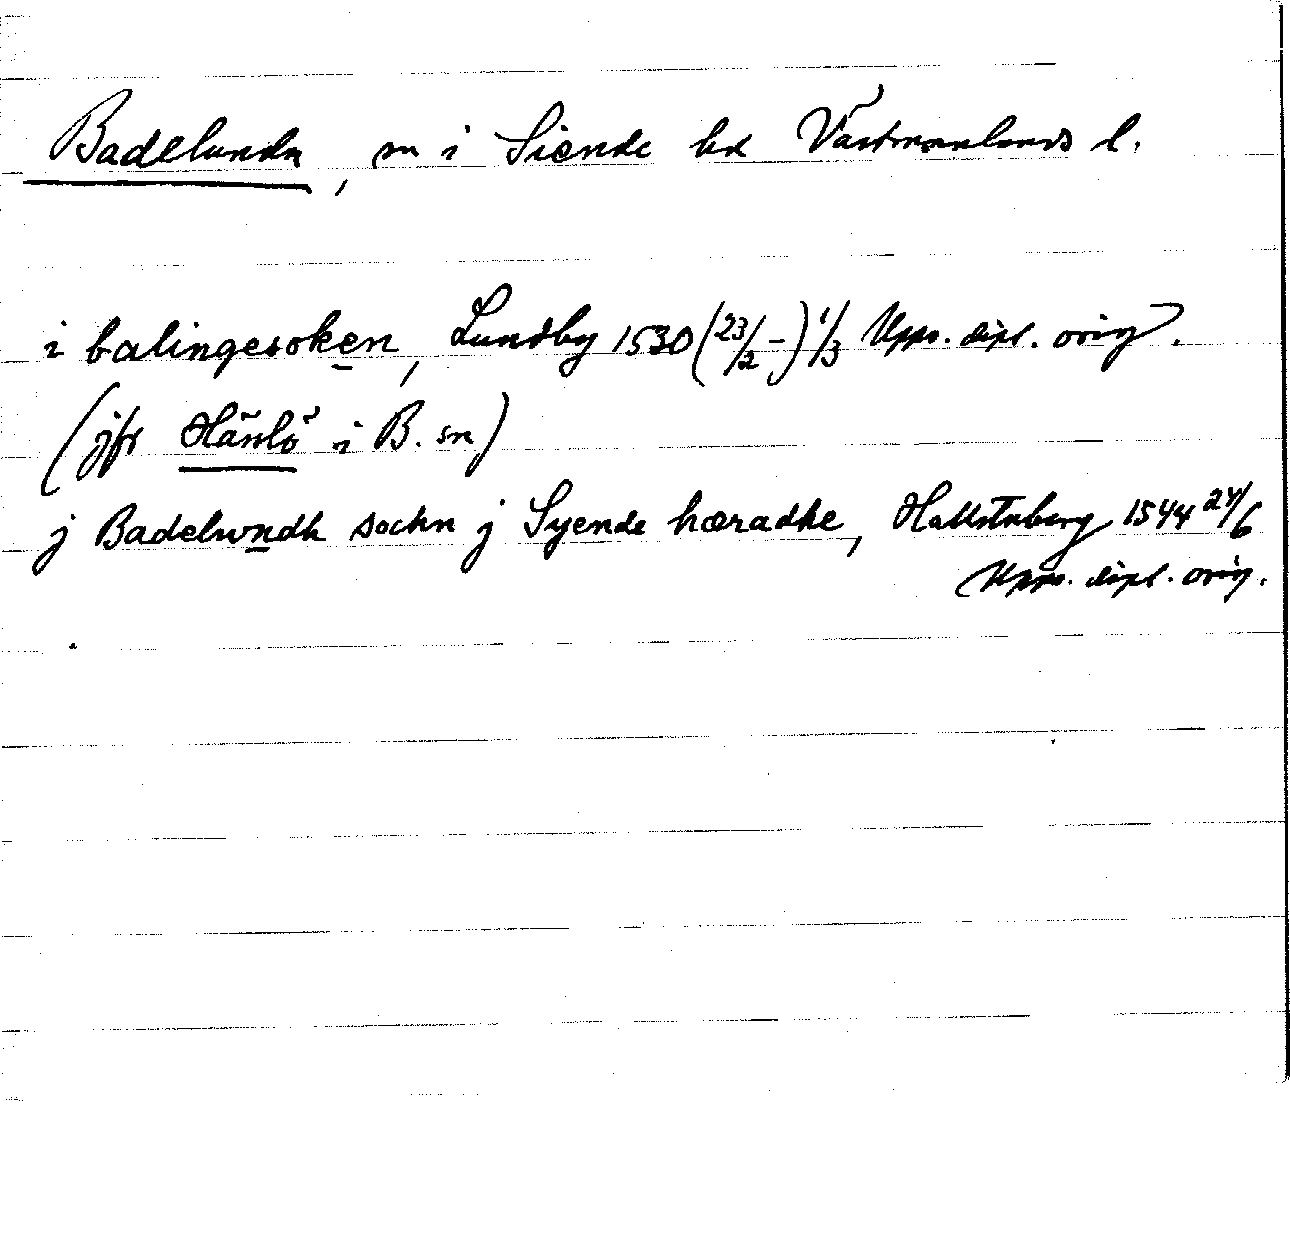 Badelunda, sn i Siende hd Västmanlands l.
i balingesoken, Lundby 1530 (23/2 -) 1/3 Upps. dipl. orig.
(jfr Hänlö i B. sn)
j Badelwndh sochn j Syende hæradhe, Hallstaberg 1544 24/6
Upps. dipl. orig.